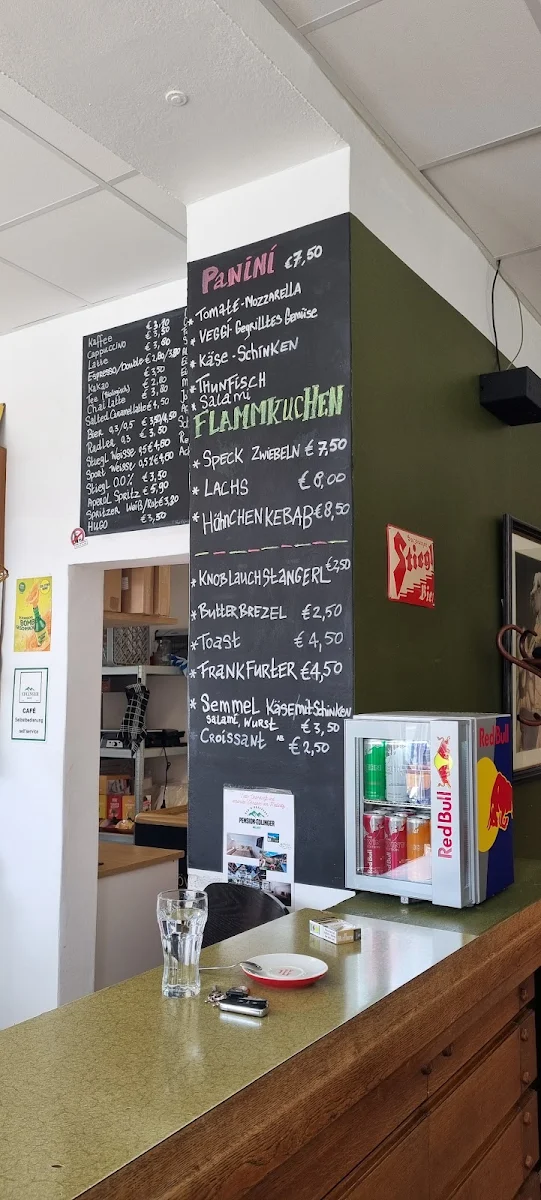 PANINI €7,50
* TOMATE-MOZZARELLA
* VEGGI-Gegrilltes Gemüse
* Käse-Schinken
* THUNFISCH
* Salami
FLAMMKUCHEN
* SPECK ZWIEBELN €7,50
* LACHS €8,00
* HÄHNCHENKEBAB €8,50
* KNOBLAUCHSTANGERL €3,50
* BUTTERBREZEL €2,50
* Toast €4,50
* FRANKFURTER €4,50
* Semmel Käse/mit Schinken
salami, WURST €3,50
CROISSANT AB €2,50
Kaffee
CAPPUCCINO €3,50
Latte €3,60
Espresso/Double
Kakao €3,50
Tee
Chai Latte €3,80
Salted Caramel latte €4,50
Bier 0,3/0,5
Radler 0,3 €3,50
Stiegl Weisse 0,5 €4,60
Sport Weisse 0,5 €4,60
Stiegl 0.0% €3,50
Aperol Spritz €5,90
Spritzer Weiß/Rot €3,20
HUGO €3,50
Stiegl
Bier
BOMB
CAFÉ
Selbstbedienung
self service
PENSION EDLINGER
Red Bull
Red Bull